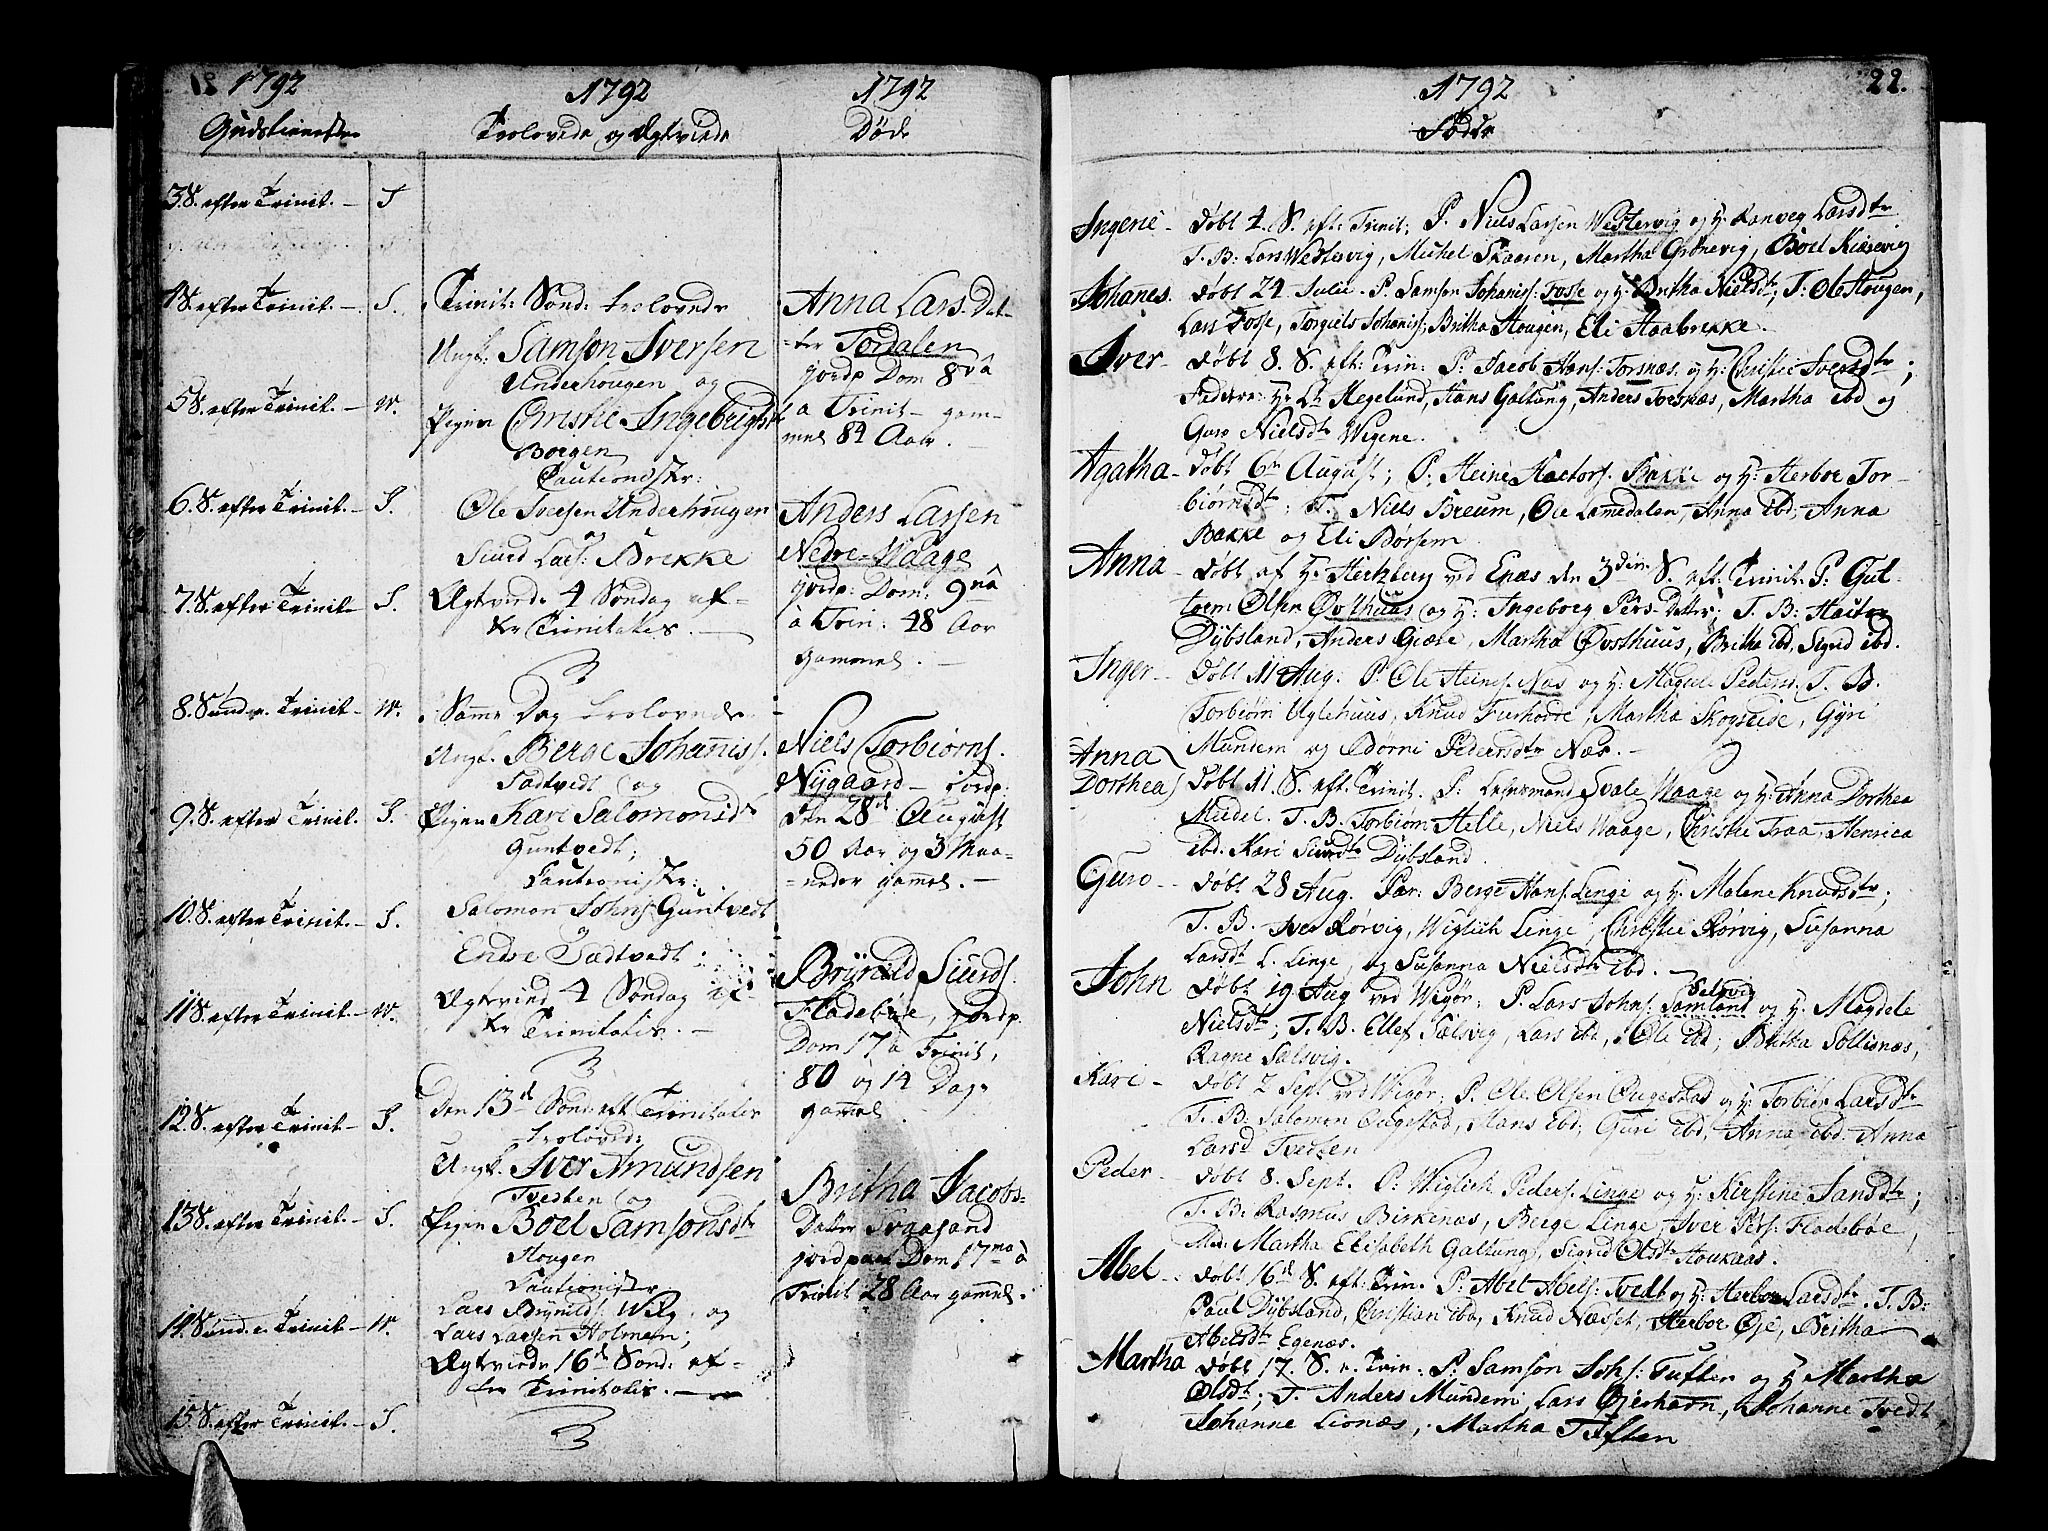 1792
Gudstienester
3. S. efter Trinit. – S
4 S. efter Trinit. – S.
5 S. efter Trinit. – W.
6. S. efter Trinit. – S.
7. S. efter Trinit – S.
8. Sönd. e. Trinit – W.
9. S. efter Trinit. S.
10. S. efter Trinit. – S.
11 S. efter Trinit. – W.
12. S. efter Trinit. – S.
13 S. efter Trinit. – S.
14. Sönd. e. Trinit – W.
15 S. efter Trinit. – S.
1792
Trolovede og Ægteviede
Trinit: Sønd: trolovede
Ungk: Samson Iversen
Underhougen og
Pigen Christie Ingebrigtsdr
Borgen
Cautionister:
Ole Iversen Underhougen
og
Siurd Lars: Brekke
Ægteviede 4 Søndag ef-
ter Trinitatis. –
Samme Dag trolovede –
Ungk. Berge Johaniss.
Sædtvedt og
Pigen Kari Salomonsdr
Guntvedt;
Cautionister:
Salomon Johns: Guntvedt
og
Endre Sædtvedt:
Ægteviede 4 Søndag ef-
ter Trinitatis. –
Den 13d Sønd: eft Trinitatis
trolovede
Ungk. Iver Amundsen
Tvedten og
Pigen Boel Samsonsdtr
Hougen
Cautionister
Lars Brynilds: Wiig og
Lars Larsen Holmen;
Ægteviede 16d Sønd: ef-
ter Trinitatis. –
1792
Døde
Anna Lars Dat-
ter Tordalen
jordp Dom 8va
a Trinit – gam-
mel 84 Aar. –
Anders Larsen
Nedre-Waage
jordp: Dom: 9na
à Trin: 48 Aar
gammel. –
Niels Torbiørns.
Nygaard – jordp:
den 28d August
50 Aar og 3 Maa-
neder gammel. –
Brynild Siurds.
Fladebøe, jordp.
Dom 17 a Trinit,
80 og 14 Dage
gammel
Britha Jacobs-
Datter Svaasand
jordpaa Dom 17ma à
Trinit 28 Aar gammel.
1792
22.
Fødte
Ingerie – døbt 4. S. eft: Trinit; P. Niels Larsen Westervig og H: Ranveig Larsdtr
T. B: Lars Westervig, Michel Skaaren, Martha Grønevig, Boel Kiærevig
Johanes. døbt 24 Julie. P. Samson Johaniss: Fosse og H: Britha Nielsdtr; T: Ole Hougen,
Lars Fosse, Torgiels Johaniss; Britha Hougen, Eli Haabrekke.
Iver – døbt 8. S. eft: Trin: P: Jacob Hans: Torsnæs, og H: Christie Iversdtr;
Faddere: Hr Lt Hegelund, Hans Galtung, Anders Torsnæs, Martha ibd og
Guro Nielsdtr Wigene.
Agatha – døbt 6te August; P: Heine Hactors. Bakke og H: Herbor Tor-
biørnsdtr; T. Niels Breum, Ole Lamedalen, Anna ibd, Anna
Bakke og Eli Børsem.
Anna – døbt af Hr Hertzberg ved Enæs den 3die S. eft: Trinit: P: Gut-
torm Olsen Østhuus og H: Ingeborg Pers-Datter; T. B: Hactor
Dybsland, Anders Giære, Martha Østhuus, Britha ibd, Sigrid ibd.
Inger – døbt 11 Aug. P. Ole Heines. Næs og H: Magele Peders. T. B.
Torbiørn Uglehuus, Knud Furhovde, Martha Skogseide, Gyri
Mundem og Pedersdtr Næs. –
Anna
Dorthea døbt 11. S. eft. Trinit. P: Lehnsmand Svale Waage og H: Anna Dorthea
Meidel. T. B. Torbiørn Helle, Niels Waage, Christie Traa, Henrica
ibd. Kari Siurdtr Dybsland.
Guro – døbt 28 Aug. Par: Berge Hans. Linge og H. Malene Knudsdtr;
T. B. Iver Rørvig, Wiglich Linge, Christie Rørvig, Susanna
Larsdtr L. Linge, og Susanna Nielsdtr ibd. –
John døbt 19 Aug ved Wigør; P. Lars Johns: Samland Selsvig og H. Magdele
Nielsdtr; T. B. Ellef Sælsvig, Lars ibd, Ole ibd; Britha Sollesnæs,
Ragne Sælsvig.
Kari – døbt 2 Sept ved Wigør; P. Ole Olsen Augestad og H: Torbiør Larsdtr
T. B: Salomon Augestad, Hans ibd; Guri ibd, Anna ibd: Anna
Larsd Tvedten
Peder – døbt 8. Sept. P: Wiglich Peders. Linge og H: Kirstine Jansdtr;
T. B: Rasmus Birkenæs, Berge Linge, Iver Pers: Fladebøe,
Md: Martha Elisabeth Galtung, Sigrid Olsdtr Houkaas.
Abel – døbt 16d S. eft: Trin. P: Abel Abels: Tvedt og H: Herbor Larsdtr. T. B:
Paul Dybsland, Christian ibd, Knud Næsset, Herbor Øje, Britha
Abelsdtr Egenæs.
Martha døbt 17. S. e. Trin. P: Samson Johs: Tuften og H Martha
Olsdtr; T. Anders Mundem, Lars Gierhavn, Johanne Tvedt
Johanne Lionæs, Martha Tuften